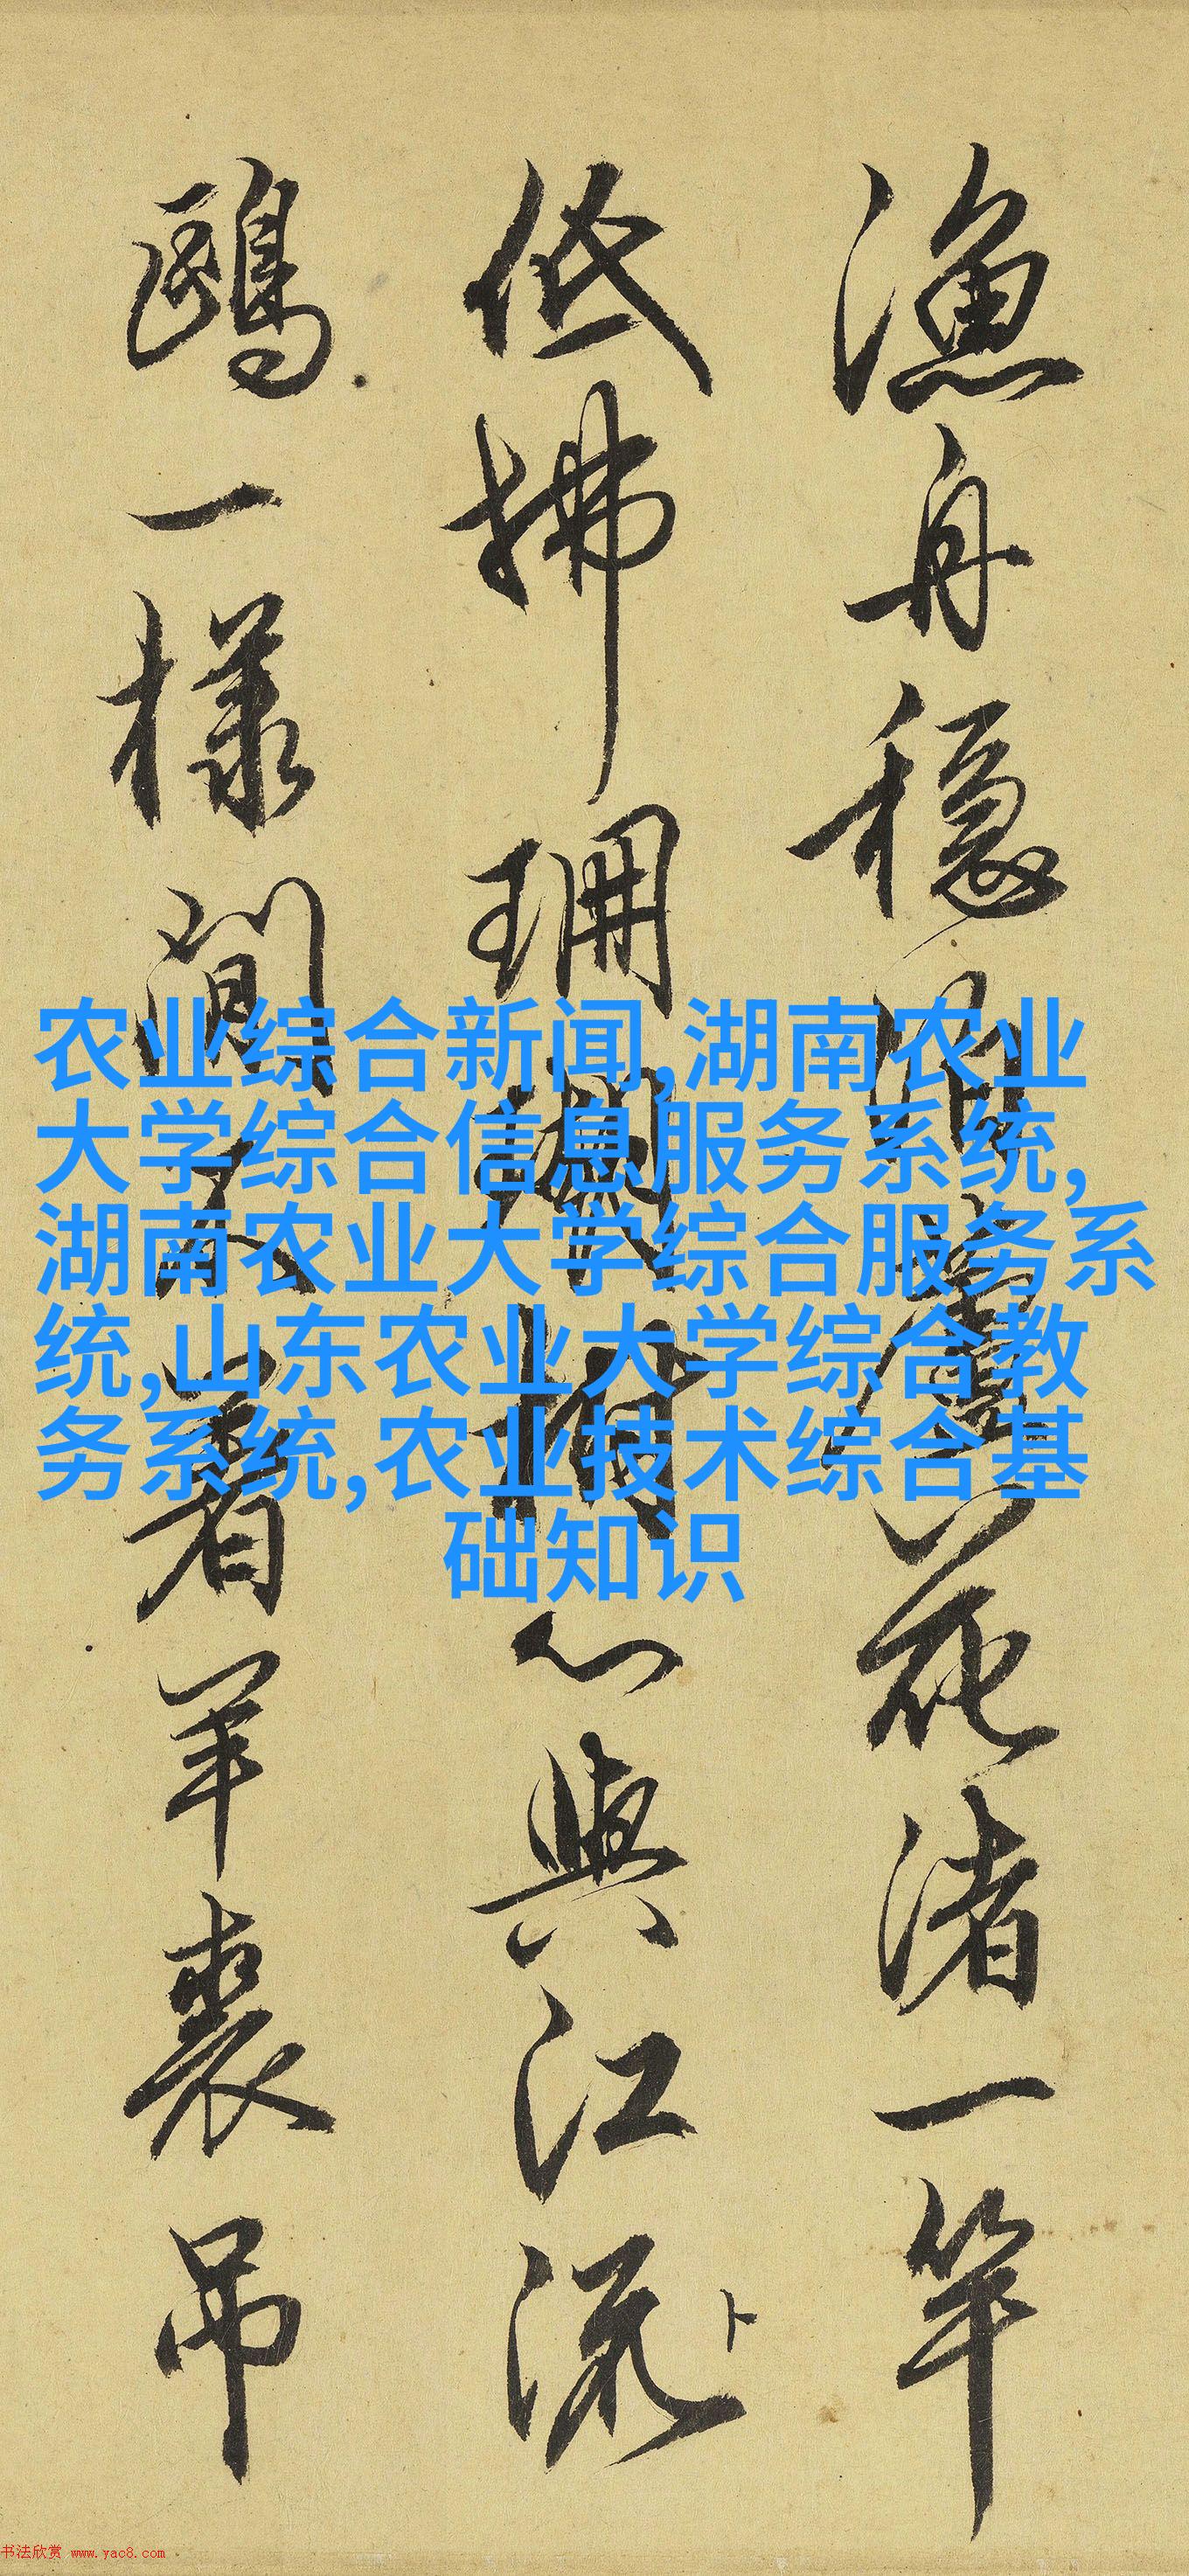 漁舟穩
花渚一竿
低拂珊
心與江流卜
鷗一樣閒
著羊裘弔
农业综合新闻,湖南农业
大学综合信息服务系统,
湖南农业大学综合服务系
统,山东农业大学综合教
务系统,农业技术综合基
础知识
书法欣赏 www.yac8.com